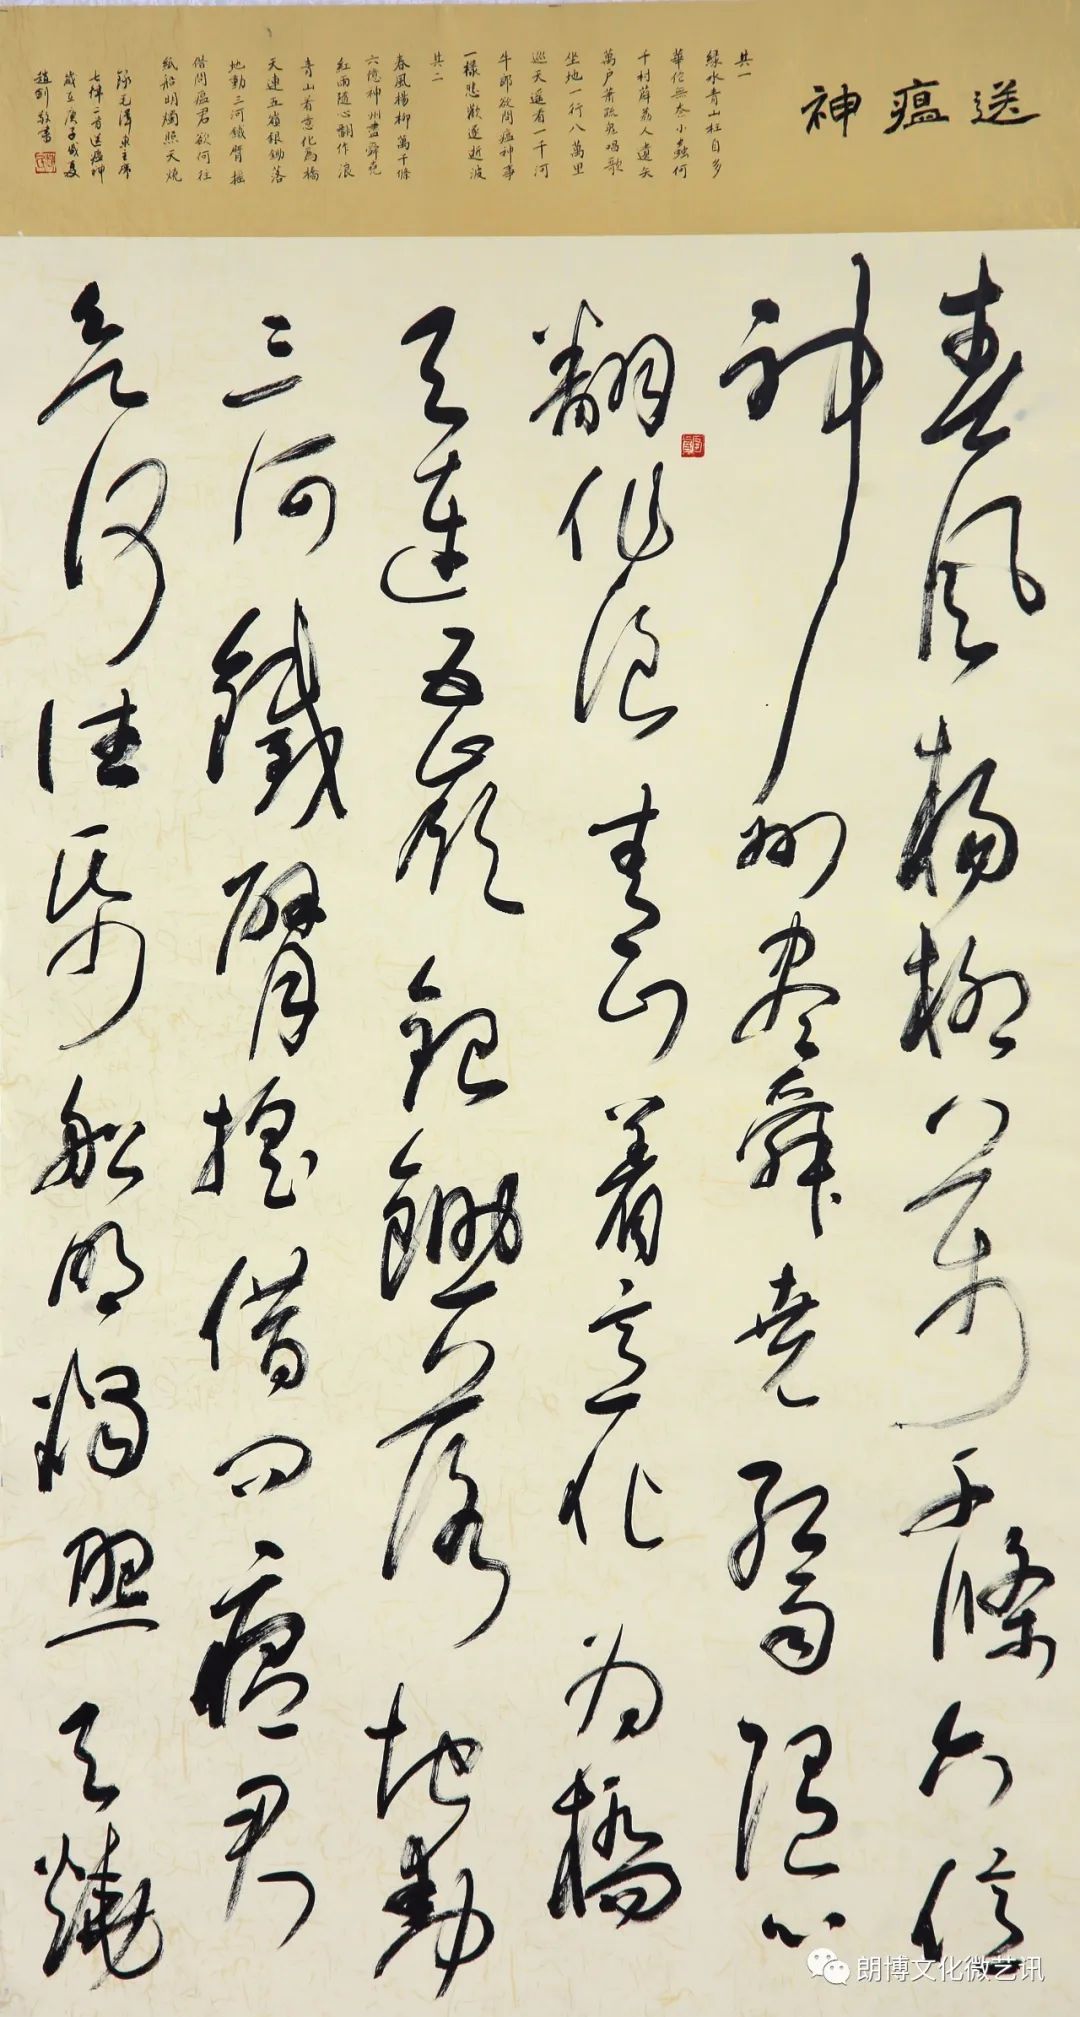 送瘟神
其一
綠水青山枉自多
華佗無奈小蟲何
千村薜荔人遺矢
萬戶蕭疏鬼唱歌
坐地一行八萬里
巡天遙看一千河
牛郎欲問瘟神事
一樣悲歡逐逝波
其二
春風楊柳萬千條
六億神州盡舜堯
紅雨隨心翻作浪
青山着意化為橋
天連五嶺銀鋤落
地動三河鐵臂搖
借問瘟君欲何往
紙船明燭照天燒
錄毛澤東主席
七律二首送瘟神
歲在庚子盛夏
趙釗敬書
春風楊柳萬千條六億
神州盡舜堯紅雨隨心
翻作浪青山着意化为橋
天連五嶺銀鋤落地動
三河鐵臂搖借問瘟君
欲何往紙船明燭照天燒
朗博文化微艺讯